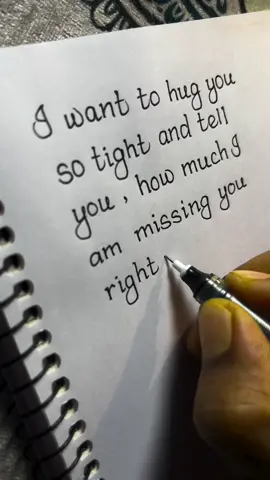 I want to hug you
so tight and tell
you, how much I
am missing you
right